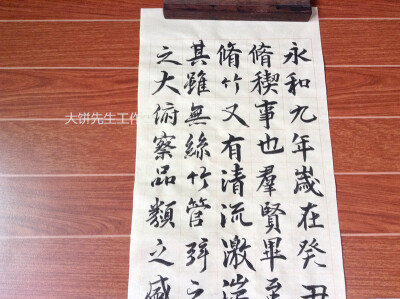 永和九年嵗在癸丑
脩稧事也羣賢畢至
脩竹又有清流激湍
其雖無絲竹管弦之
之大俯察品類之盛
大饼先生工作